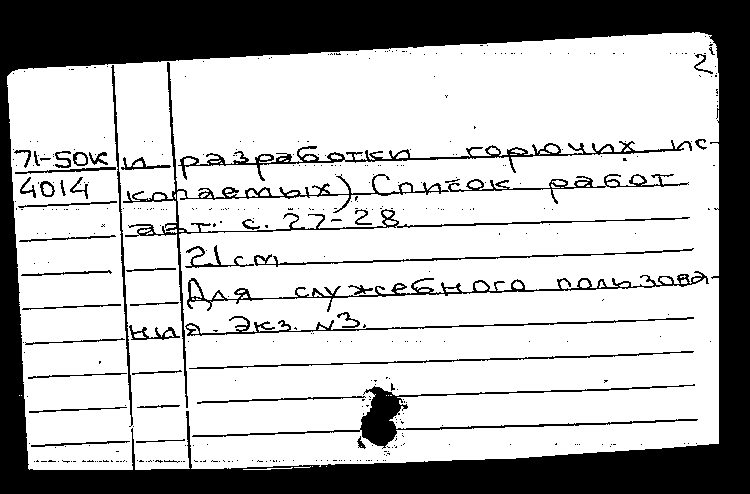 2
71-50к и разработки горючих ис-
4014 копаемых). Список работ
авт.: с. 27-28.
21 см.
Для служебного пользова-
ния. Экз. N3.